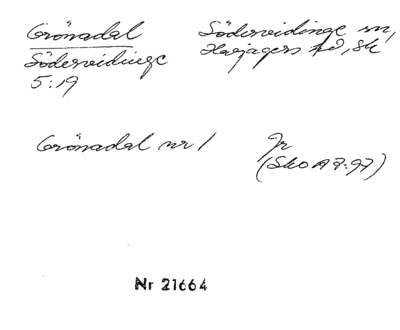 Grönadal
Södervidinge
5:19
Södervidinge sn,
Harjagers hd, Sk
Grönadal nr 1
Jr
(SkO A 7:97)
Nr 21664